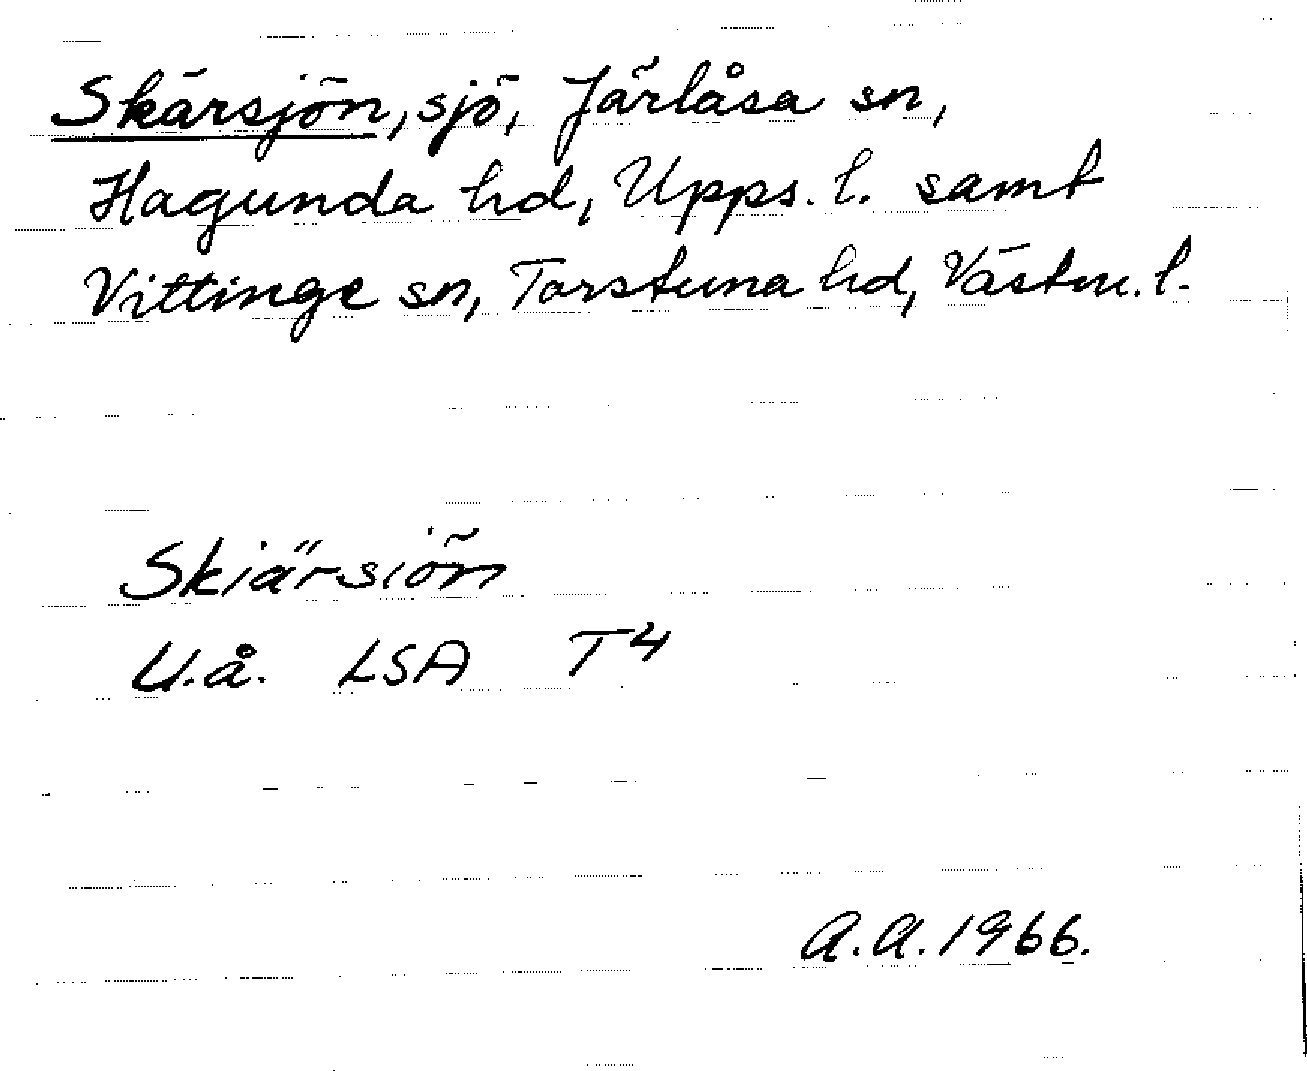 Skärsjön, sjö, Järlåsa sn,
Hagunda hd, Upps. l. samt
Vittinge sn, Torstuna hd, Västm. l.
Skiärsiön
U.å. LSA T4
A.A. 1966.